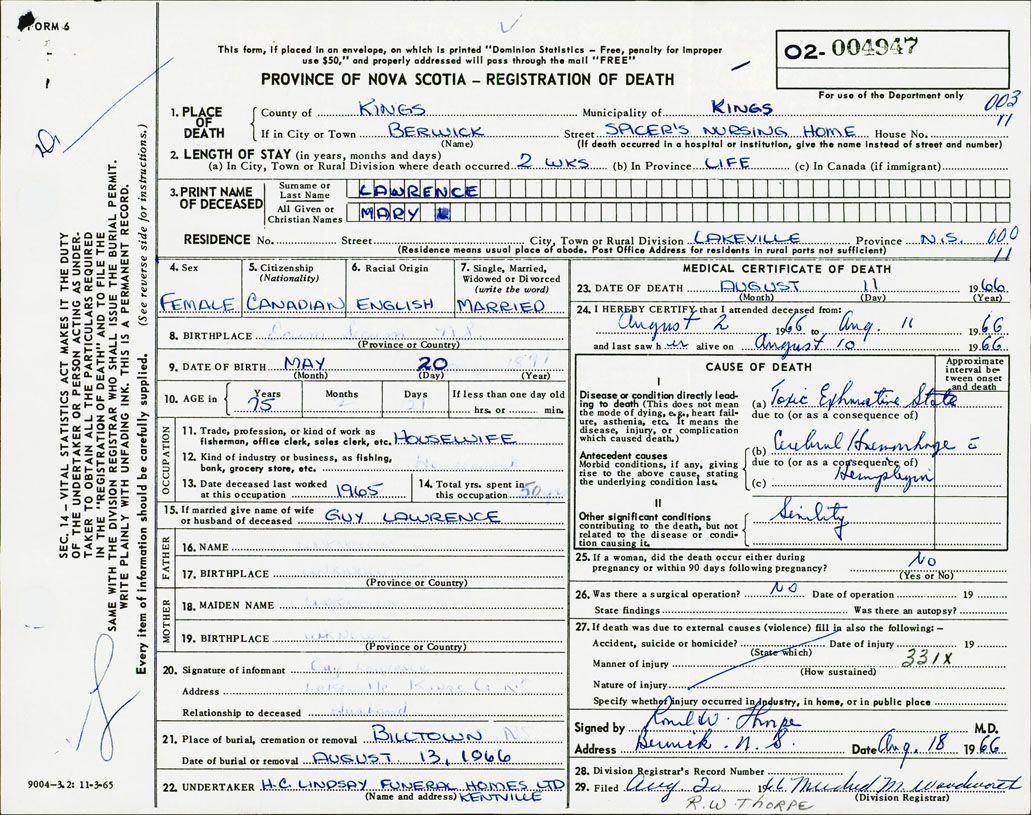 FORM 6
This form, if placed in an envelope, on which is printed "Dominion Statistics – Free, penalty for improper
use $50," and properly addressed will pass through the mail "FREE"
PROVINCE OF NOVA SCOTIA – REGISTRATION OF DEATH
02- 004947
For use of the Department only
003
11
1. PLACE OF DEATH
County of KINGS Municipality of KINGS
If in City or Town BERWICK Street SPICER'S NURSING HOME House No.
(Name) (If death occurred in a hospital or institution, give the name instead of street and number)
2. LENGTH OF STAY (in years, months and days)
(a) In City, Town or Rural Division where death occurred 2 WKS (b) In Province LIFE (c) In Canada (if immigrant)
3. PRINT NAME OF DECEASED
Surname or Last Name LAWRENCE
All Given or Christian Names MARY
RESIDENCE No. Street City, Town or Rural Division LAKEVILLE Province N.S. 000
(Residence means usual place of abode. Post Office Address for residents in rural parts not sufficient) 11
4. Sex FEMALE
5. Citizenship (Nationality) CANADIAN
6. Racial Origin ENGLISH
7. Single, Married, Widowed or Divorced (write the word) MARRIED
8. BIRTHPLACE
(Province or Country)
9. DATE OF BIRTH MAY 20 1891
(Month) (Day) (Year)
10. AGE in Years 75 Months 2 Days 21 If less than one day old
hrs. or min.
OCCUPATION
11. Trade, profession, or kind of work as
fisherman, office clerk, sales clerk, etc. HOUSEWIFE
12. Kind of industry or business, as fishing,
bank, grocery store, etc.
13. Date deceased last worked
at this occupation 1965
14. Total yrs. spent in
this occupation 50
15. If married give name of wife
or husband of deceased GUY LAWRENCE
FATHER
16. NAME UNKNOWN
17. BIRTHPLACE UNKNOWN
(Province or Country)
MOTHER
18. MAIDEN NAME UNKNOWN
19. BIRTHPLACE UNKNOWN
(Province or Country)
20. Signature of informant Guy Lawrence
Address Lakeville Kings Co NS
Relationship to deceased Husband
21. Place of burial, cremation or removal BILLTOWN NS
Date of burial or removal AUGUST 13, 1966
22. UNDERTAKER H.C. LINDSAY FUNERAL HOMES LTD
(Name and address) KENTVILLE
MEDICAL CERTIFICATE OF DEATH
23. DATE OF DEATH AUGUST 11 1966
(Month) (Day) (Year)
24. I HEREBY CERTIFY that I attended deceased from:
August 2 1966 to Aug. 11 1966
and last saw her alive on August 10 1966
CAUSE OF DEATH
Approximate interval between onset and death
I
Disease or condition directly leading to death (This does not mean
the mode of dying, e.g., heart failure, asthenia, etc. It means the
disease, injury, or complication
which caused death.)
(a) Toxic Exhaustive State
due to (or as a consequence of)
Antecedent causes
Morbid conditions, if any, giving
rise to the above cause, stating
the underlying condition last.
(b) Cerebral Haemorrhage
due to (or as a consequence of)
(c) Hemiplegia
II
Other significant conditions
contributing to the death, but not
related to the disease or condition causing it.
Senility
25. If a woman, did the death occur either during
pregnancy or within 90 days following pregnancy? No
(Yes or No)
26. Was there a surgical operation? NO Date of operation 19
State findings Was there an autopsy?
27. If death was due to external causes (violence) fill in also the following: –
Accident, suicide or homicide? Date of injury 19
(State which)
Manner of injury 331X
(How sustained)
Nature of injury
Specify whether injury occurred in industry, in home, or in public place
Signed by W. Thorpe M.D.
Address Berwick. N.S. Date Aug. 18 1966
28. Division Registrar's Record Number
29. Filed Aug 20 1966 Mildred M. Woodworth
(Division Registrar)
R.W. THORPE
SEC. 14 – VITAL STATISTICS ACT MAKES IT THE DUTY
OF THE UNDERTAKER OR PERSON ACTING AS UNDERTAKER TO OBTAIN ALL THE PARTICULARS REQUIRED
IN THE "REGISTRATION OF DEATH" AND TO FILE THE
SAME WITH THE DIVISION REGISTRAR WHO SHALL ISSUE THE BURIAL PERMIT.
WRITE PLAINLY WITH UNFADING INK. THIS IS A PERMANENT RECORD.
Every item of information should be carefully supplied. (See reverse side for instructions.)
9004-3.2: 11-3-65